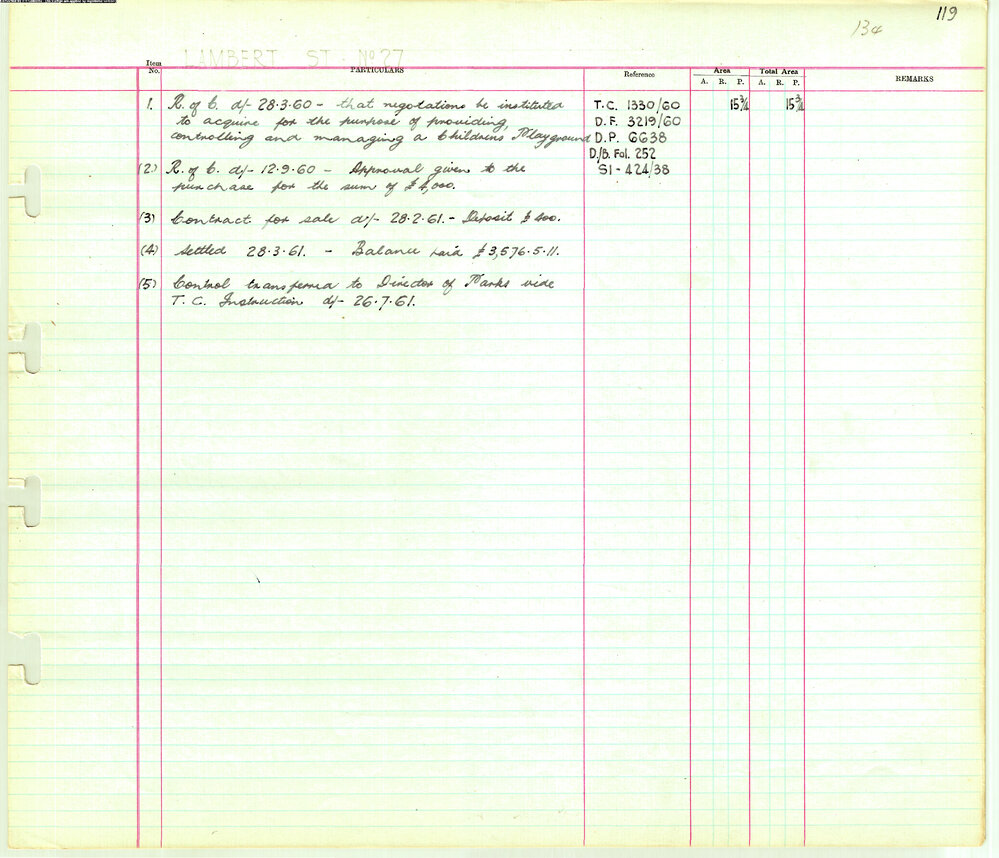 119
134
LAMBERT ST Nº 27
Item No. PARTICULARS Reference Area A. R. P. Total Area A. R. P. REMARKS
1. R. of C. d/- 28.3.60 - that negotations be instituted T.C. 1330/60 15¾ 15¾
to acquire for the purpose of providing, D.F. 3219/60
controlling and managing a Childrens Playground D.P. 6638
D/B. Fol. 252
(2) R. of C. d/- 12.9.60 - Approval given to the S1-424/38
purchase for the sum of £4,000.
(3) Contract for sale d/- 28.2.61. - Deposit £400.
(4) Settled 28.3.61. - Balance paid £3,576.5.11.
(5) Control transferred to Director of Parks vide
T.C. Instruction d/- 26.7.61.